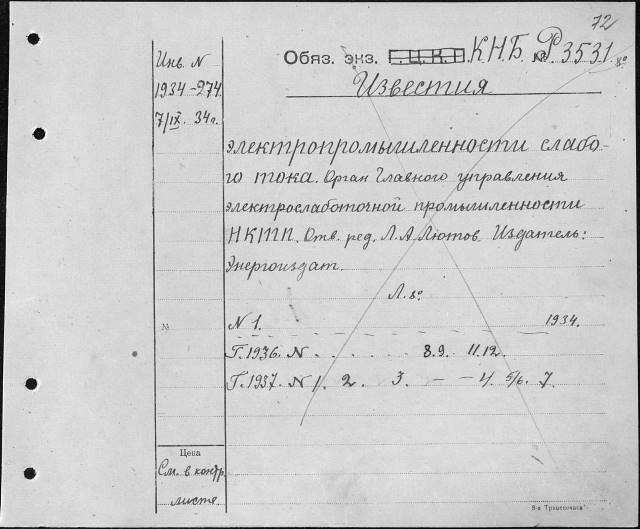 72
Обяз. экз. Г.Ц.К.П. К.Н.Б. № Р3531. 8°
Известия
Инв. N
1934-274.
7/IX. 34г.
электропромышленности слабо-
го тока. Орган Главного управления
электрослаботочной промышленности
НКТП. Отв. ред. Л.А. Лютов. Издатель:
Энергоиздат.
Л. 8°
№
N 1. 1934.
Г. 1936. N . . . . . . 8. 9. 11. 12.
Г. 1937. N 1. 2. 3. – – 4. 5/6. 7.
Цена
См. в контр.
листе.